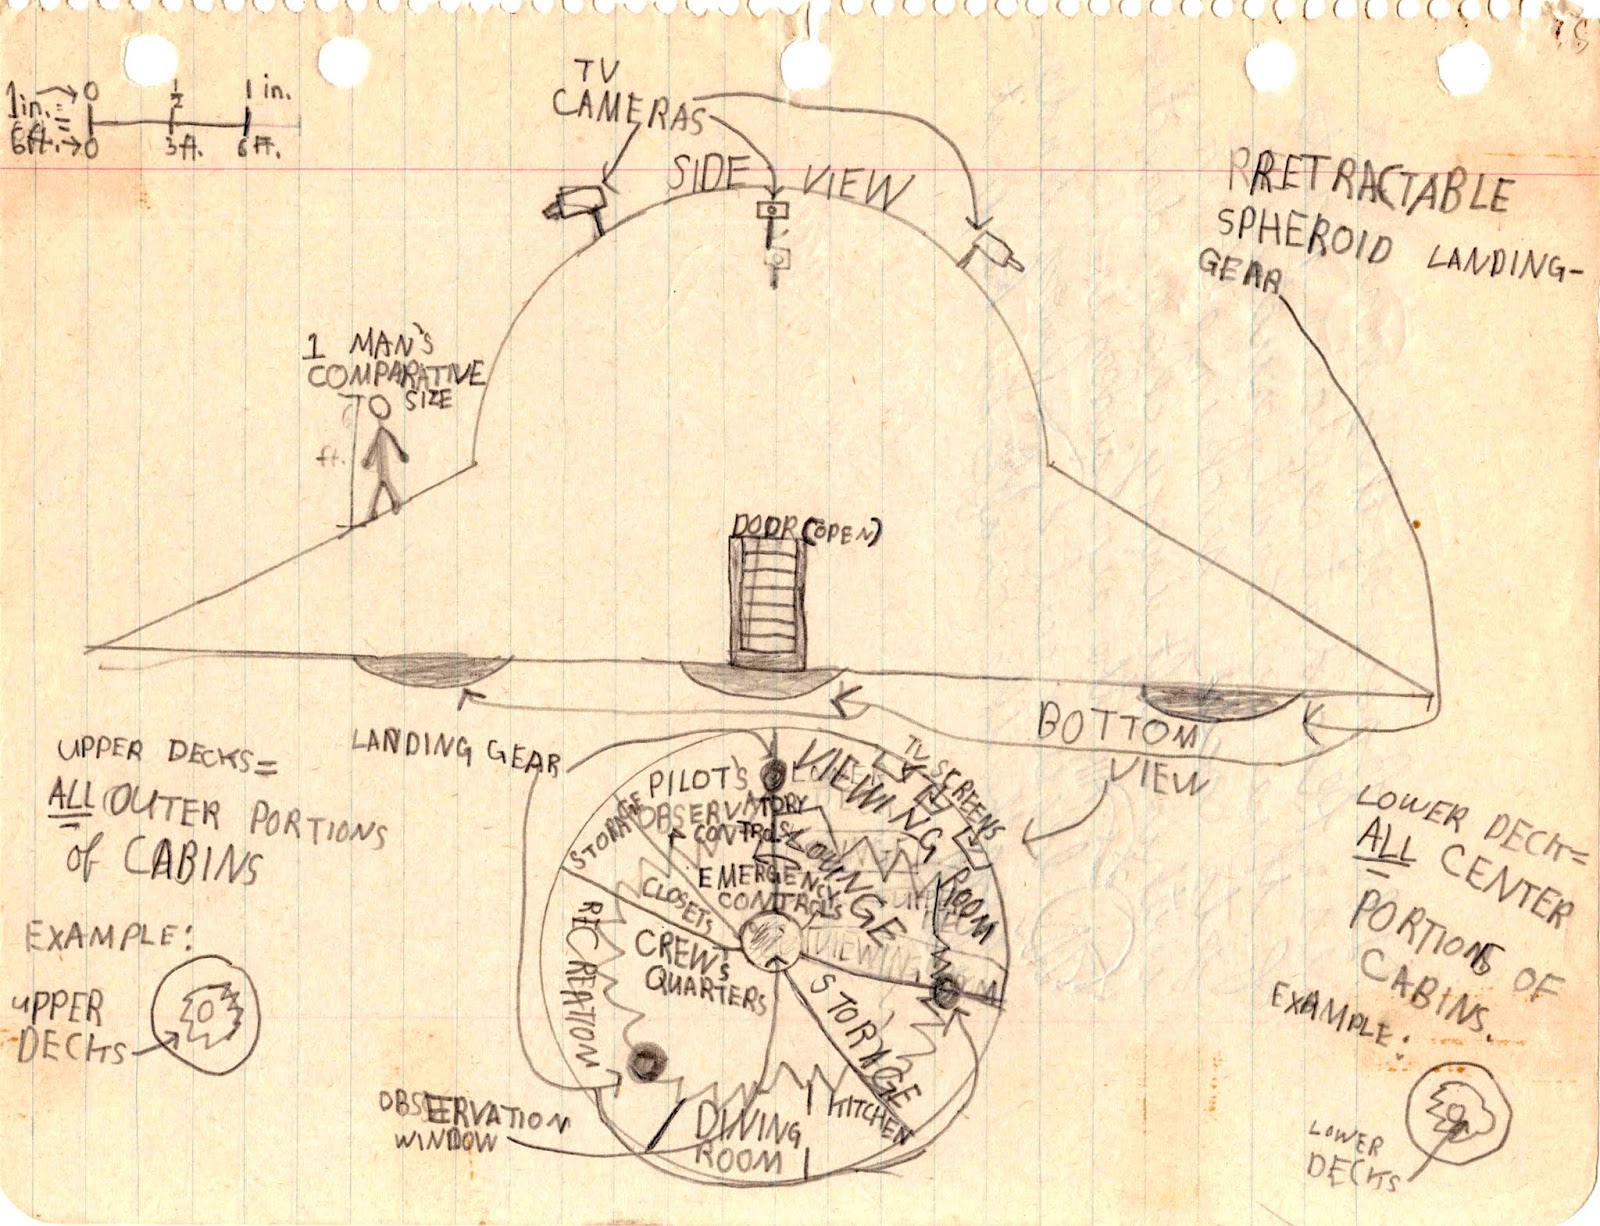 0
1/2
1 in.
1 in. =
6 ft.
0
3 ft.
6 ft.
TV
CAMERAS
SIDE VIEW
RETRACTABLE
SPHEROID LANDING-
GEAR
1 MAN'S
COMPARATIVE
SIZE
6
ft.
DOOR (OPEN)
LANDING GEAR
BOTTOM
VIEW
UPPER DECKS=
ALL OUTER PORTIONS
of CABINS
EXAMPLE:
UPPER
DECKS
LOWER DECK=
ALL CENTER
PORTIONS OF
CABINS.
EXAMPLE:
LOWER
DECKS
PILOT'S
OBSERVATORY
CONTROLS
EMERGENCY
CONTROLS
STORAGE
CLOSETS
RECREATION
CREW'S
QUARTERS
VIEWING ROOM
TV SCREENS
LOUNGE
VIEWING ROOM
STORAGE
KITCHEN
DINING
ROOM
OBSERVATION
WINDOW